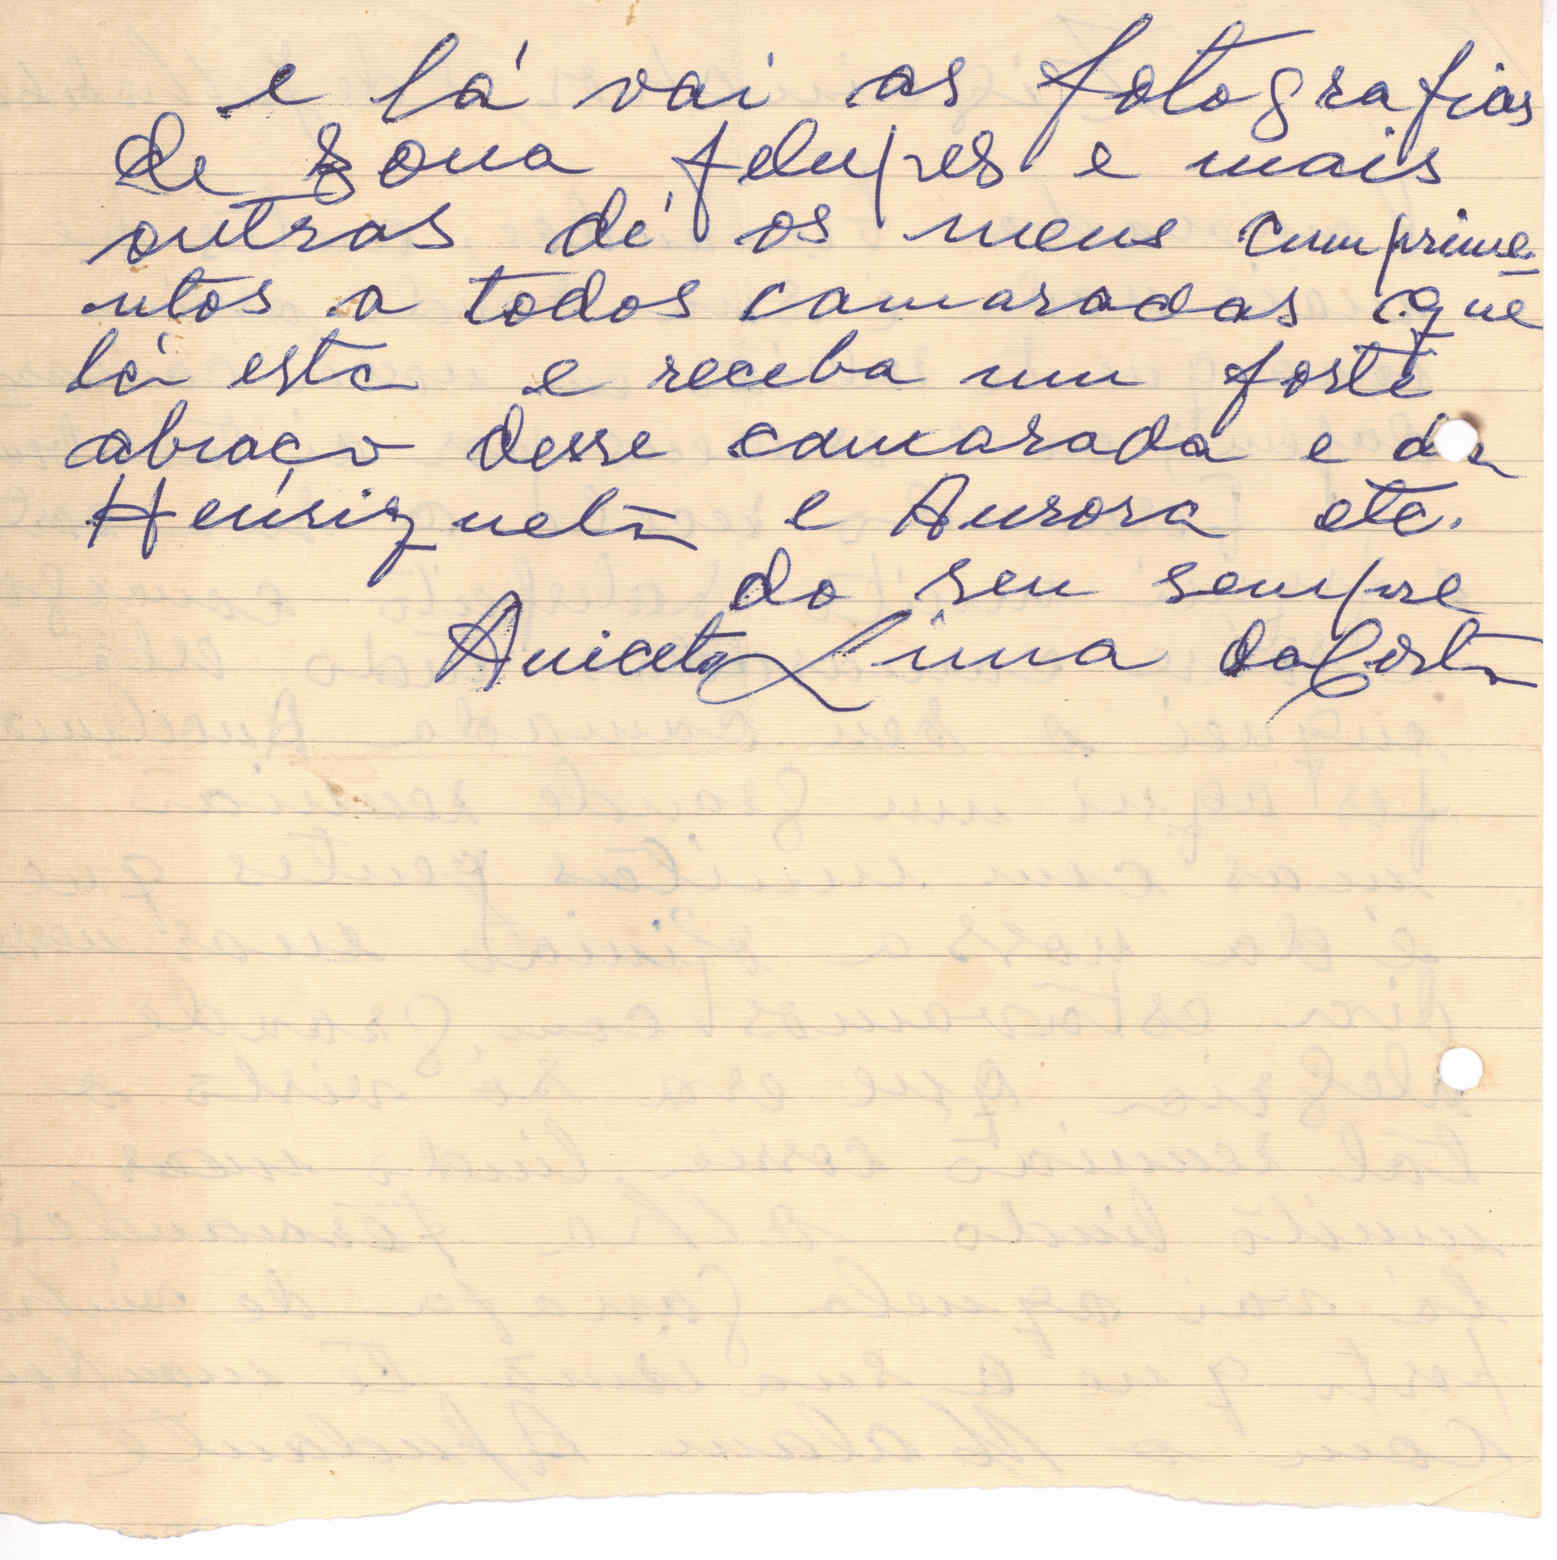 e lá vai as fotografias
de zona felupes e mais
outras dê os meus cumprime-
ntos a todos camaradas que
lá esta e receba um forte
abraço desse camarada e da
Henriqueta e Aurora etc.
do seu sempre
Aniceto Lima da Costa